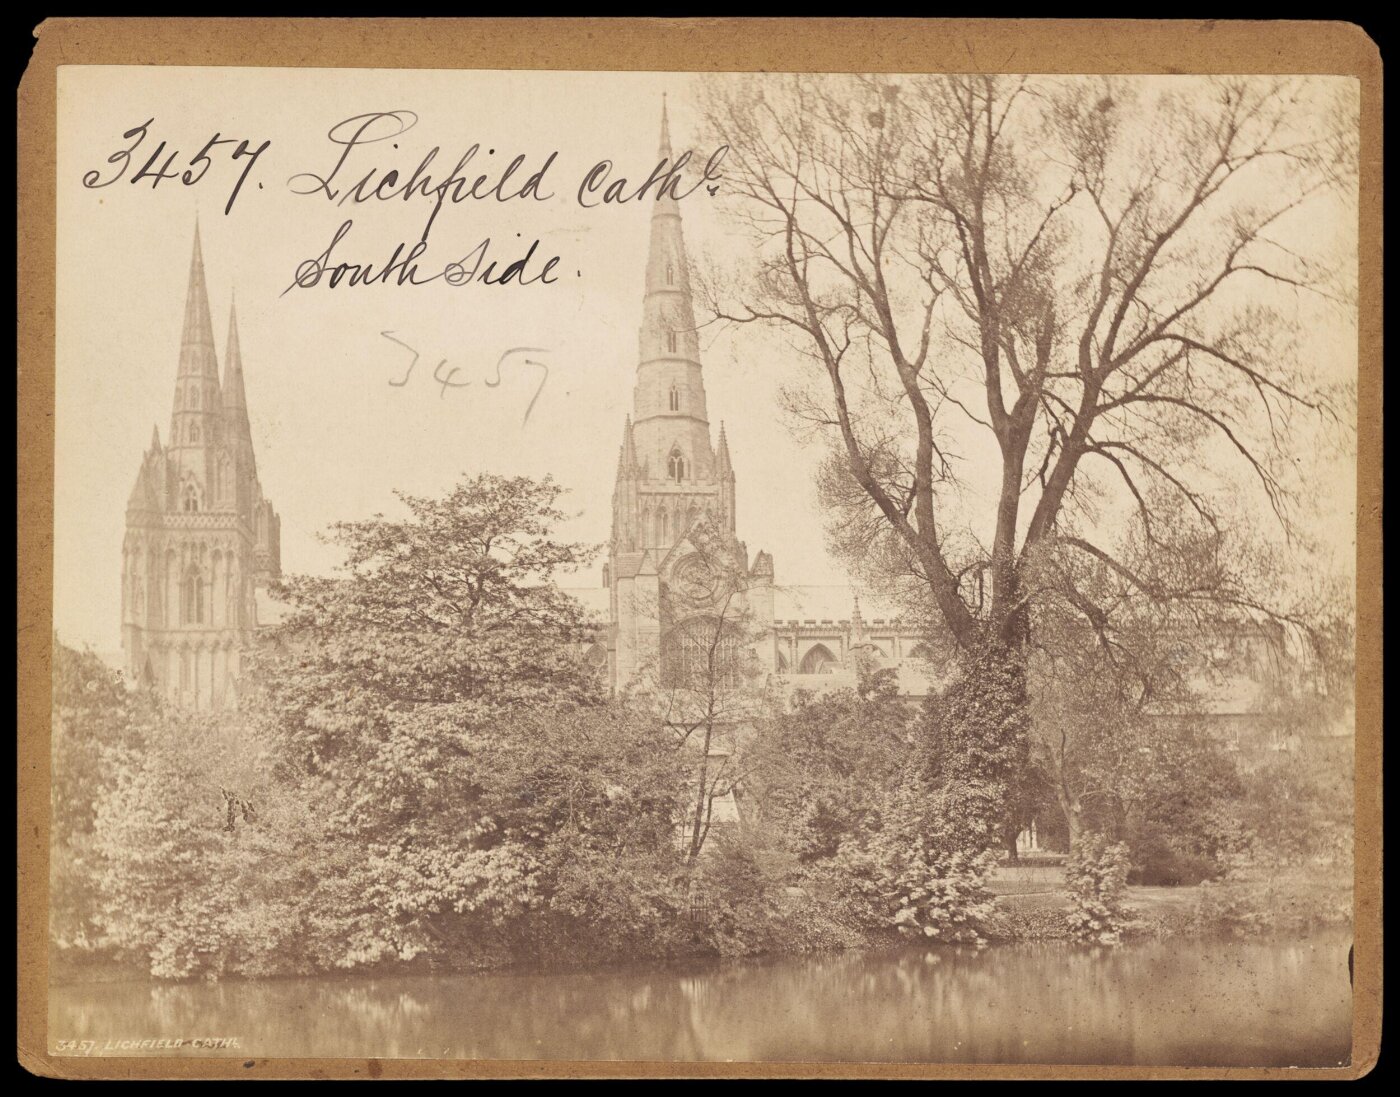 3457. Lichfield Cathl.
South Side.
3457
3457. LICHFIELD CATHL.